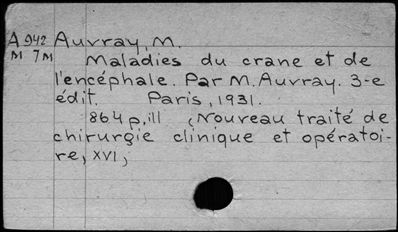 A 942 Auvray, M.
M 7M Maladies du crane et de
l'encéphale. Par M. Auvray. 3-e
édit. Paris, 1931.
864 p, ill (Nouveau traité de
chirurgie clinique et opératoi-
re, XVI,